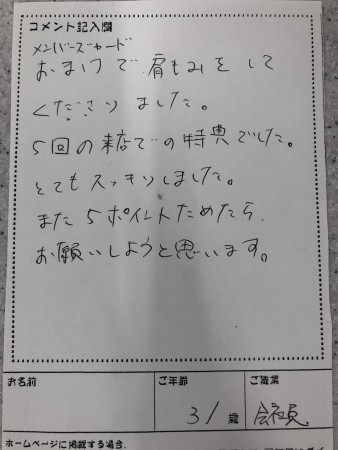 コメント記入欄
メンバーズカード
おまけで肩もみをして
くださりました。
5回の来店での特典でした。
とてもスッキリしました。
また5ポイントためたら、
お願いしようと思います。
お名前 ご年齢 ご職業
31歳 会社員
ホームページに掲載する場合、